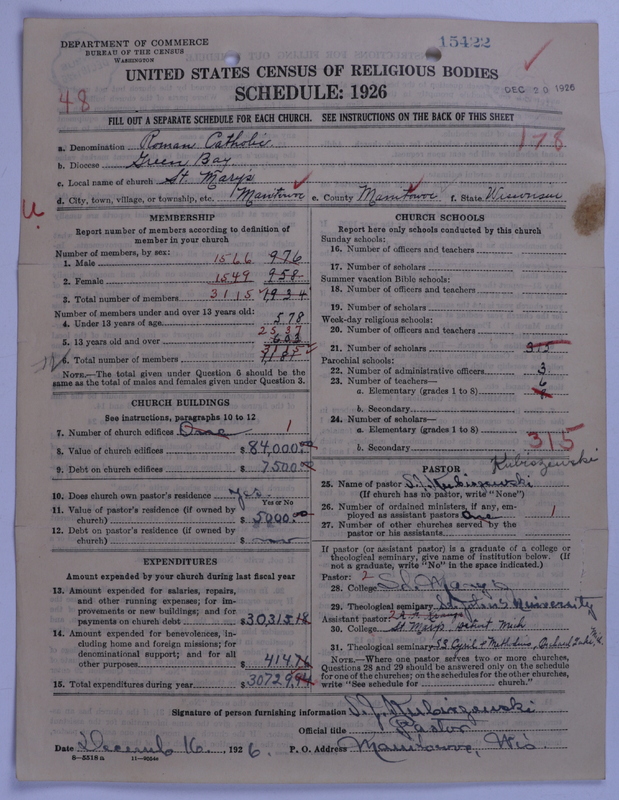 DEPARTMENT OF COMMERCE
BUREAU OF THE CENSUS
WASHINGTON
15422
UNITED STATES CENSUS OF RELIGIOUS BODIES
SCHEDULE: 1926
DEC 20 1926
48
FILL OUT A SEPARATE SCHEDULE FOR EACH CHURCH. SEE INSTRUCTIONS ON THE BACK OF THIS SHEET
178
a. Denomination Roman Catholic
b. Diocese Green Bay
c. Local name of church St. Mary's
d. City, town, village, or township, etc. Manitowoc e. County Manitowoc f. State Wisconsin
MEMBERSHIP
Report number of members according to definition of
member in your church
Number of members, by sex:
1. Male 1566 976
2. Female 1549 958
3. Total number of members 3115 1934
Number of members under and over 13 years old:
4. Under 13 years of age 578
2537
5. 13 years old and over 603
6. Total number of members
NOTE.—The total given under Question 6 should be the
same as the total of males and females given under Question 3.
CHURCH BUILDINGS
See instructions, paragraphs 10 to 12
7. Number of church edifices One 1
8. Value of church edifices $84,000.00
9. Debt on church edifices $7500
10. Does church own pastor's residence Yes
Yes or No
11. Value of pastor's residence (if owned by
church) $5000.00
12. Debt on pastor's residence (if owned by
church) $
EXPENDITURES
Amount expended by your church during last fiscal year
13. Amount expended for salaries, repairs,
and other running expenses; for im-
provements or new buildings; and for
payments on church debt $30315.18
14. Amount expended for benevolences, in-
cluding home and foreign missions; for
denominational support; and for all
other purposes $414.76
15. Total expenditures during year $30729.94
CHURCH SCHOOLS
Report here only schools conducted by this church
Sunday schools:
16. Number of officers and teachers
17. Number of scholars
Summer vacation Bible schools:
18. Number of officers and teachers
19. Number of scholars
Week-day religious schools:
20. Number of officers and teachers
21. Number of scholars 315
Parochial schools:
22. Number of administrative officers 3
23. Number of teachers— 6
a. Elementary (grades 1 to 8)
b. Secondary
24. Number of scholars—
a. Elementary (grades 1 to 8) 315
b. Secondary
PASTOR
Kubiszewski
25. Name of pastor S.J. Kubiszewski
(If church has no pastor, write "None")
26. Number of ordained ministers, if any, em-
ployed as assistant pastors One 1
27. Number of other churches served by the
pastor or his assistants
If pastor (or assistant pastor) is a graduate of a college or
theological seminary, give name of institution below. (If
not a graduate, write "No" in the space indicated.)
Pastor: 2
28. College St. Mary's
29. Theological seminary St. John's University
Assistant pastor: 2
30. College St. Mary's Orchard, Mich
31. Theological seminary SS. Cyril & Methodius, Orchard Lake, Mich.
NOTE.—Where one pastor serves two or more churches,
Questions 28 and 29 should be answered only on the schedule
for one of the churches; on the schedules for the other churches,
write "See schedule for church."
Signature of person furnishing information S.J. Kubiszewski
Official title Pastor
Date Decemb 16, 1926. P. O. Address Manitowoc, Wis
8—5518 a 11—9054a